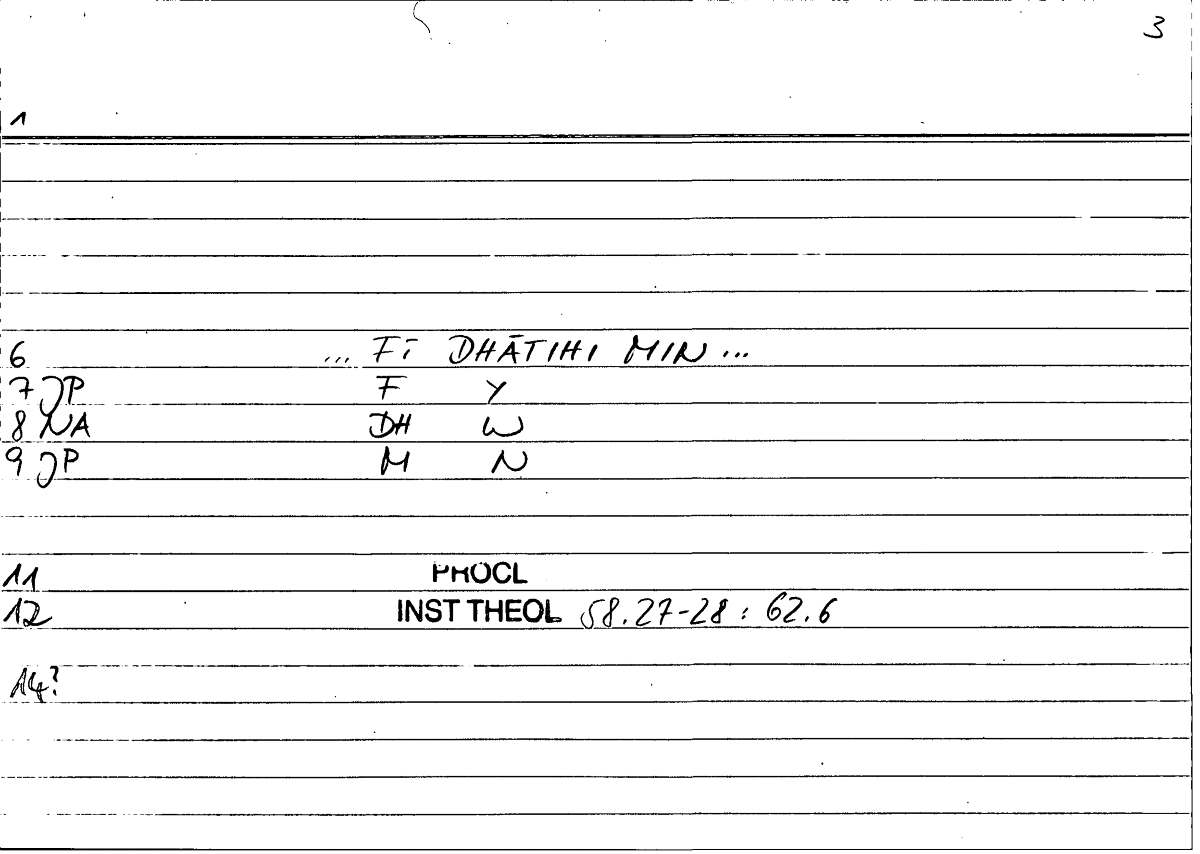 3
1
6 ... FĪ DHĀTIHI MIN ...
7 JP F Y
8 NA DH W
9 JP M N
11 PROCL
12 INST THEOL 58.27-28 : 62.6
14?